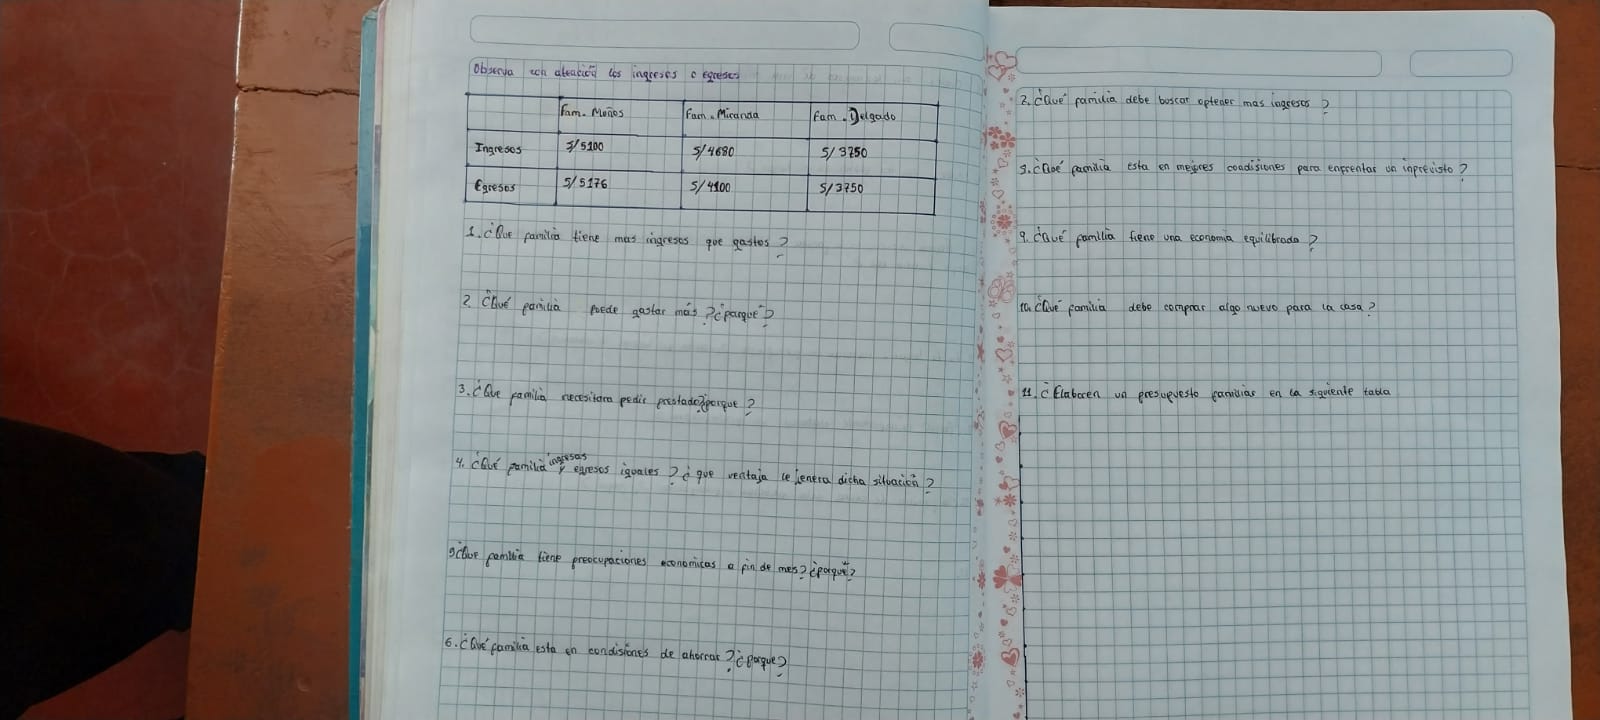 Observa con atención los ingresos e egresos
Fam. Moños Fam. Miranda Fam. Delgado
Ingresos S/5100 S/4680 S/3750
Egresos S/5176 S/4100 S/3750
1. ¿Que familia tiene mas ingresos que gastos?
2. ¿Qué familia puede gastar más? ¿porque?
3. ¿Que familia necesitara pedir prestado? ¿porque?
4. ¿Qué familia ingresos y egresos iguales? ¿que ventaja le jenera dicha situación?
¿Que familia tiene preocupaciones economicas a fin de mes? ¿porque?
6. ¿Qué familia esta en condisiones de ahorrar? ¿porque?
7. ¿Qué familia debe buscar optener mas ingresos?
¿Qué familia esta en mejores condisiones para enfrentar un inprevisto?
9. ¿Qué familia tiene una economia equilibrada?
10. ¿Qué familia debe comprar algo nuevo para la casa?
11. ¿Elaboren un presupuesto familiar en la siguiente tabla